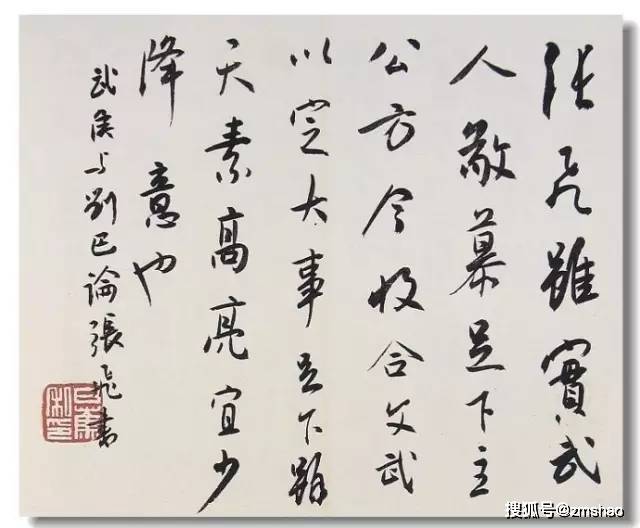 張飛雖實武
人敬慕足下主
公方今收合文武
以定大事足下雖
天素高亮宜少
降意也
武侯与劉巴論張飛書
搜狐号@zmshao